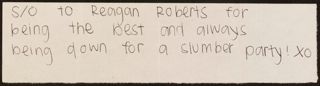 S/O to Reagan Roberts for
being the best and always
being down for a slumber party! XO